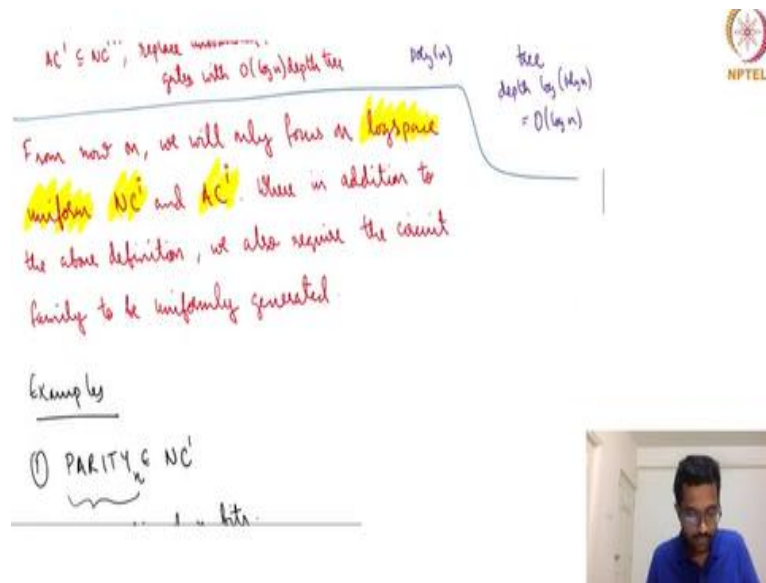 AC^i ⊆ NC^{i+1}, replace
gates with O(log n) depth tree
poly(n)
tree
depth log(poly n)
= O(log n)
NPTEL
From now on, we will only focus on logspace
uniform NC^i and AC^i. Where in addition to
the above definition, we also require the circuit
family to be uniformly generated.
Examples
① PARITY_n ∈ NC^1
bits.